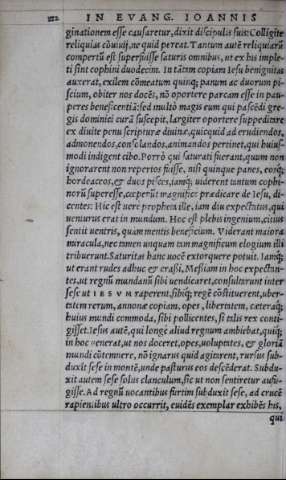 IN EVANG. IOANNIS
ginationem esse causaretur, dixit discipulis suis: Colligite
reliquias cōuiuij, ne quid pereat. Tantum autē reliquiarū
compertū est superfuisse saturis omnibus, ut ex his imple
ti sint cophini duodecim. In tātam copiam Iesu benignitas
auxerat, exilem cōmeatum quinq; panum ac duorum pi-
scium, obiter nos docēs, nō oportere parcam esse in pau-
peres beneficentiā: sed multò magis eum qui pascēdi gre-
gis dominici curā suscepit, largiter oportere suppeditare
ex diuite penu scripturæ diuinæ, quicquid ad erudiendos,
admonendos, consolandos, animandos pertinet, qui huius-
modi indigent cibo. Porrò qui saturati fuerant, quum non
ignorarent non repertos fuisse, nisi quinque panes, eosq́;
hordeaceos, & duos pisces, iamq́; uiderent tantum cophi-
norū superesse, cœperūt magnificè prædicare de Iesu, di-
centes: Hic est uerè propheta ille, iam diu expectatus, qui
uenturus erat in mundum. Hoc est plebis ingenium, citius
sentit uentris, quàm mentis beneficium. Viderant maiora
miracula, nec tamen unquam tam magnificum elogium illi
tribuerunt. Saturitas hanc uocē extorquere potuit. Iamq́;
ut erant rudes adhuc & crassi, Messiam in hoc expectan-
tes, ut regnū mundanū sibi uendicaret, consultarunt inter
sese ut IESVM raperent, sibiq́; regē cōstituerent, uber-
tatem rerum, annonæ copiam, opes, libertatem, cæteraq́;
huius mundi commoda, sibi pollicentes, si talis rex conti-
gisset. Iesus autē, qui longè aliud regnum ambiebat, quiq́;
in hoc uenerat, ut nos doceret, opes, uoluptates, & gloriā
mundi cōtemnere, nō ignarus quid agitarent, rursus sub-
duxit sese in montē, unde pasturus eos descēderat. Subdu-
xit autem sese solus clanculum, sic ut non sentiretur aufu-
gisse. Ad regnū uocantibus furtim subduxit sese, ad crucē
rapientibus ultro occurrit, euidēs exemplar exhibēs his,
qui